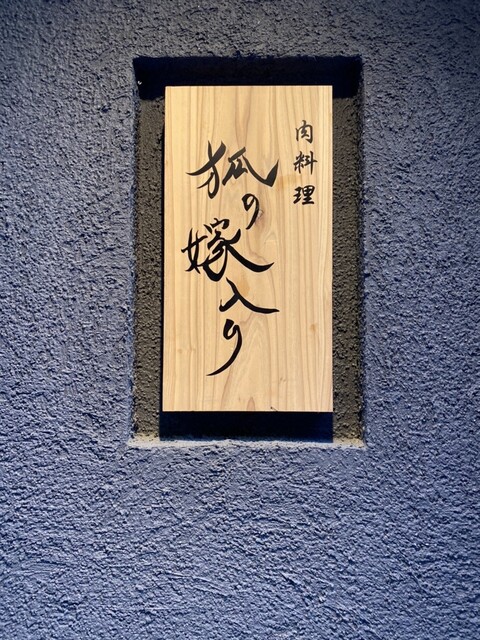 肉料理
狐の嫁入り